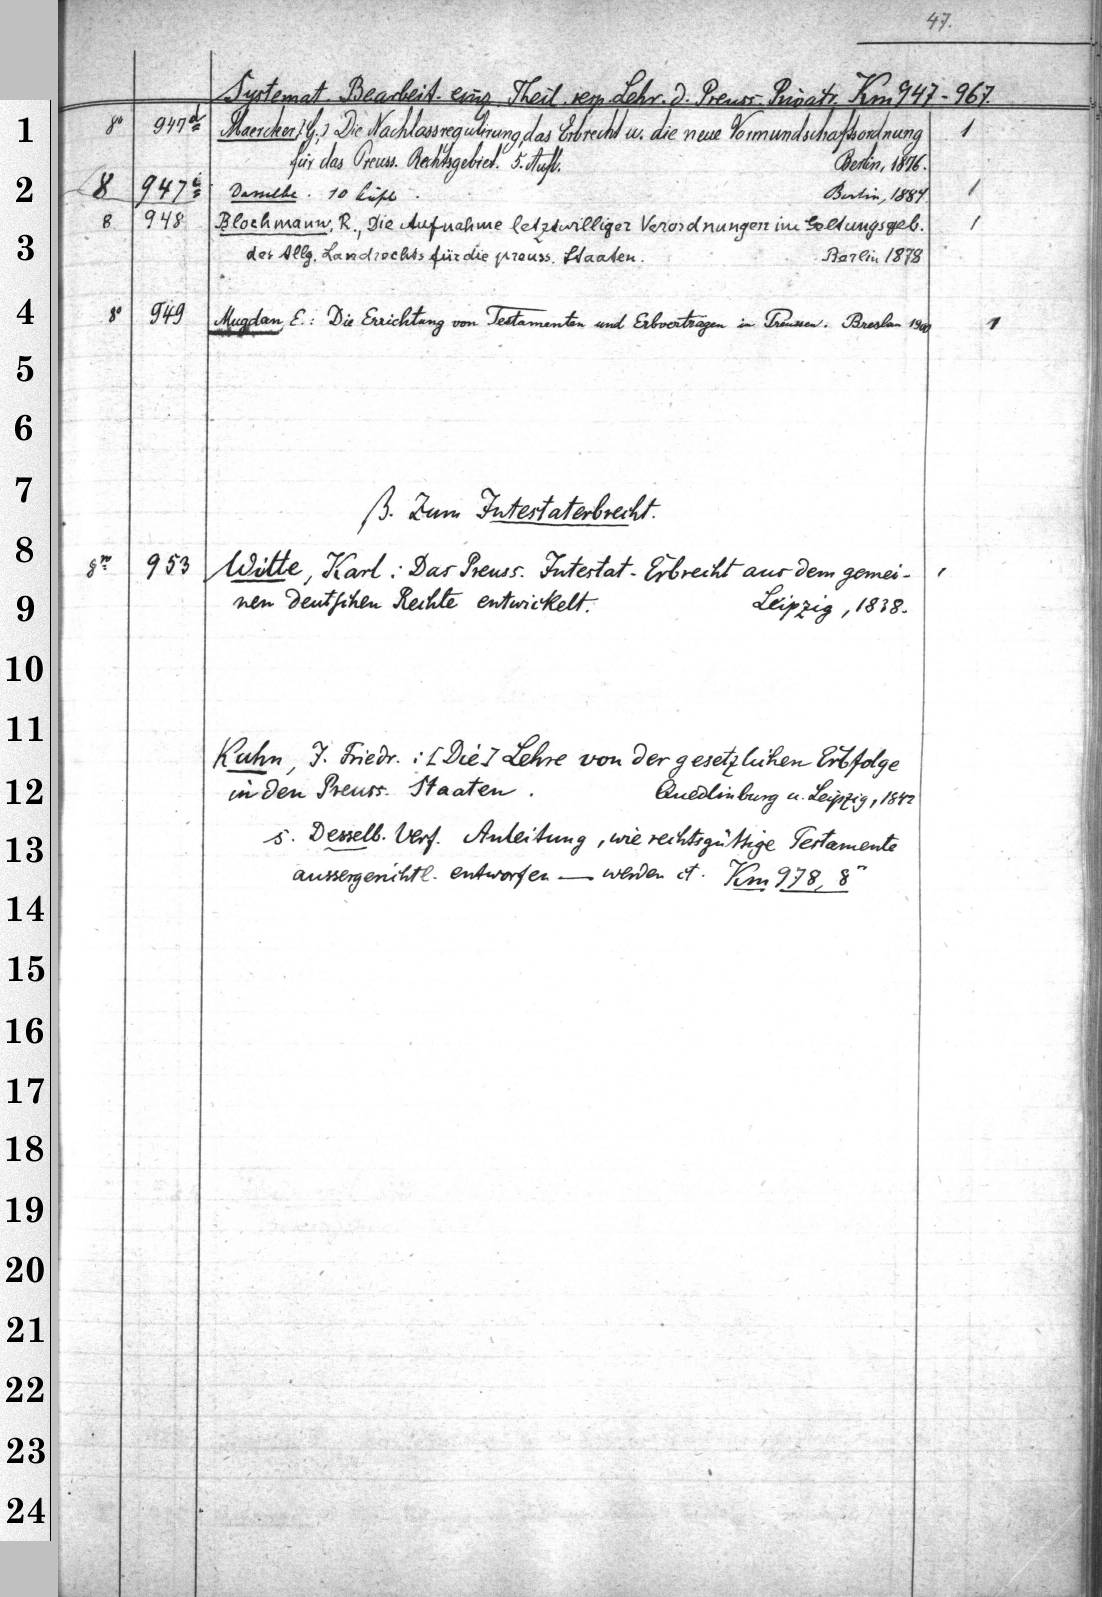 47.
Systemat. Bearbeit. einz. Theil. resp. Lehr. d. Preuss. Privatr. Km 947-967.
1 8° 947d Maercker, [G.,] Die Nachlassregulirung, das Erbrecht u. die neue Vormundschaftsordnung 1
für das Preuss. Rechtsgebiet. 5. Aufl. Berlin, 1876.
2 8 947i Dasselbe. 10 Aufl. Berlin, 1884 1
8 948 Blochmann, R., Die Aufnahme letztwilliger Verordnungen im Geltungsgeb. 1
3 des Allg. Landrechts für die preuss. Staaten. Berlin 1878
4 8° 949 Mugdan, E.: Die Errichtung von Testamenten und Erbverträgen in Preussen. Breslau 1900 1
5
6
7 β. Zum Intestaterbrecht.
8 8m 953 Witte, Karl: Das Preuss. Intestat-Erbrecht aus dem gemei- 1
9 nen deutschen Rechte entwickelt. Leipzig, 1838.
10
11 Kuhn, J. Friedr.: [Die] Lehre von der gesetzlichen Erbfolge
12 in den Preuss. Staaten. Quedlinburg u. Leipzig, 1842
13 s. Desselb. Verf. Anleitung, wie rechtsgültige Testamente
aussergerichtl. entworfen — werden et. Km 978, 8°
14
15
16
17
18
19
20
21
22
23
24